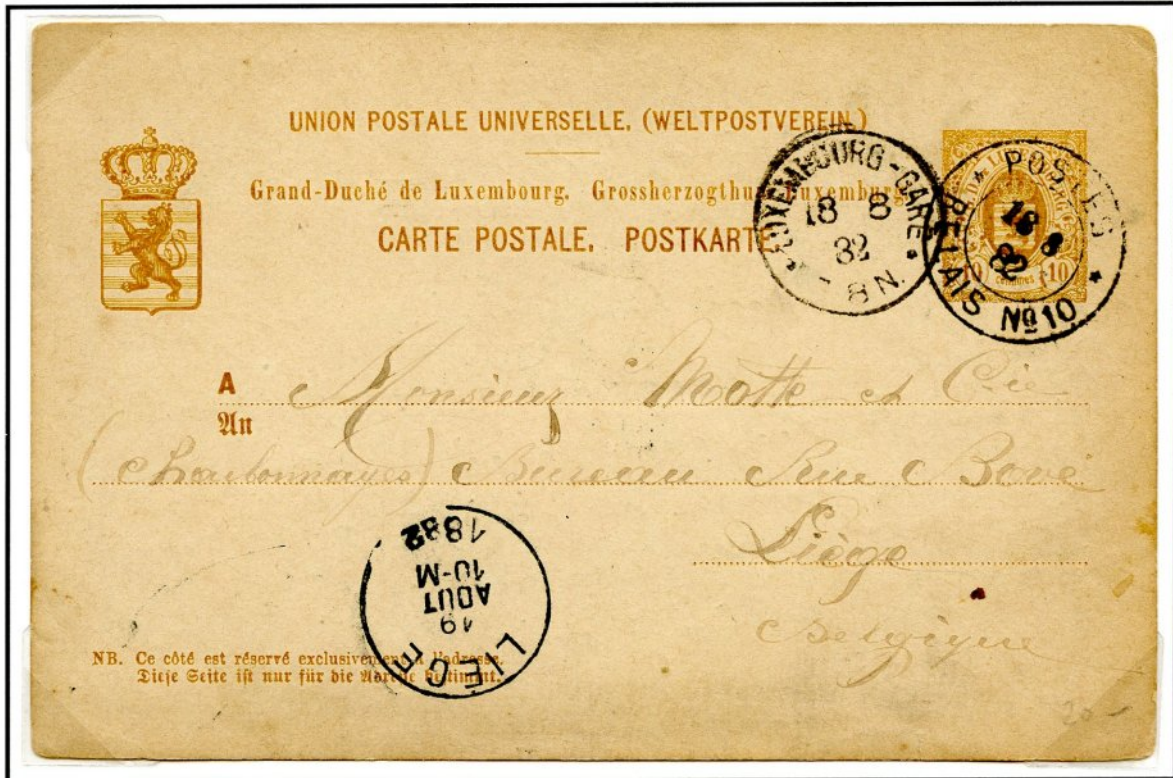 UNION POSTALE UNIVERSELLE. (WELTPOSTVEREIN.)
Grand-Duché de Luxembourg. Grossherzogthum Luxemburg.
CARTE POSTALE. POSTKARTE
LUXEMBOURG-GARE
18 8
82
- 8 N.
POSTES
18 8
82
RELAIS No 10
10 CENTIMES 10
A Monsieur Motte et Cie
An
(Charbonnages) Bureau Rue Bové
Liège
Belgique
LIÉGE
19
AOUT
10-M
1882
NB. Ce côté est réservé exclusivement à l'adresse.
Diese Seite ist nur für die Adresse bestimmt.
20-